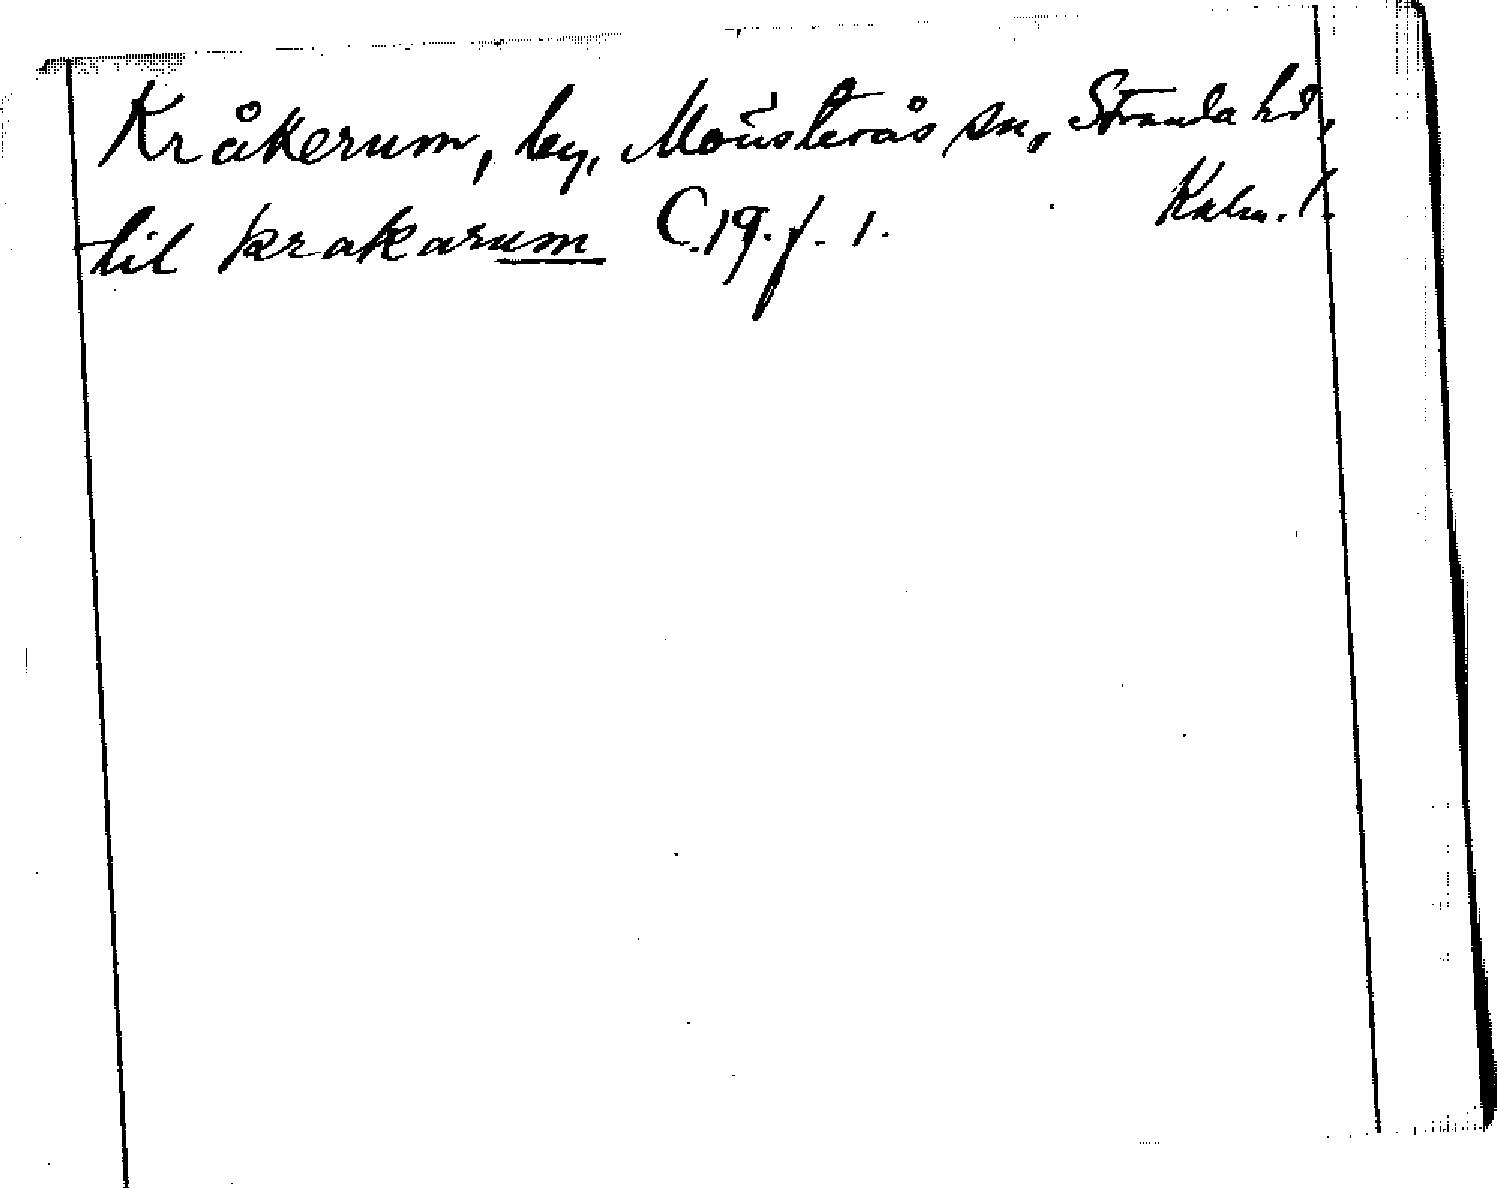 Kråkerum, by, Mönsterås sn, Stranda hd,
Kalm. l.
til krakarum C.19.f. 1.